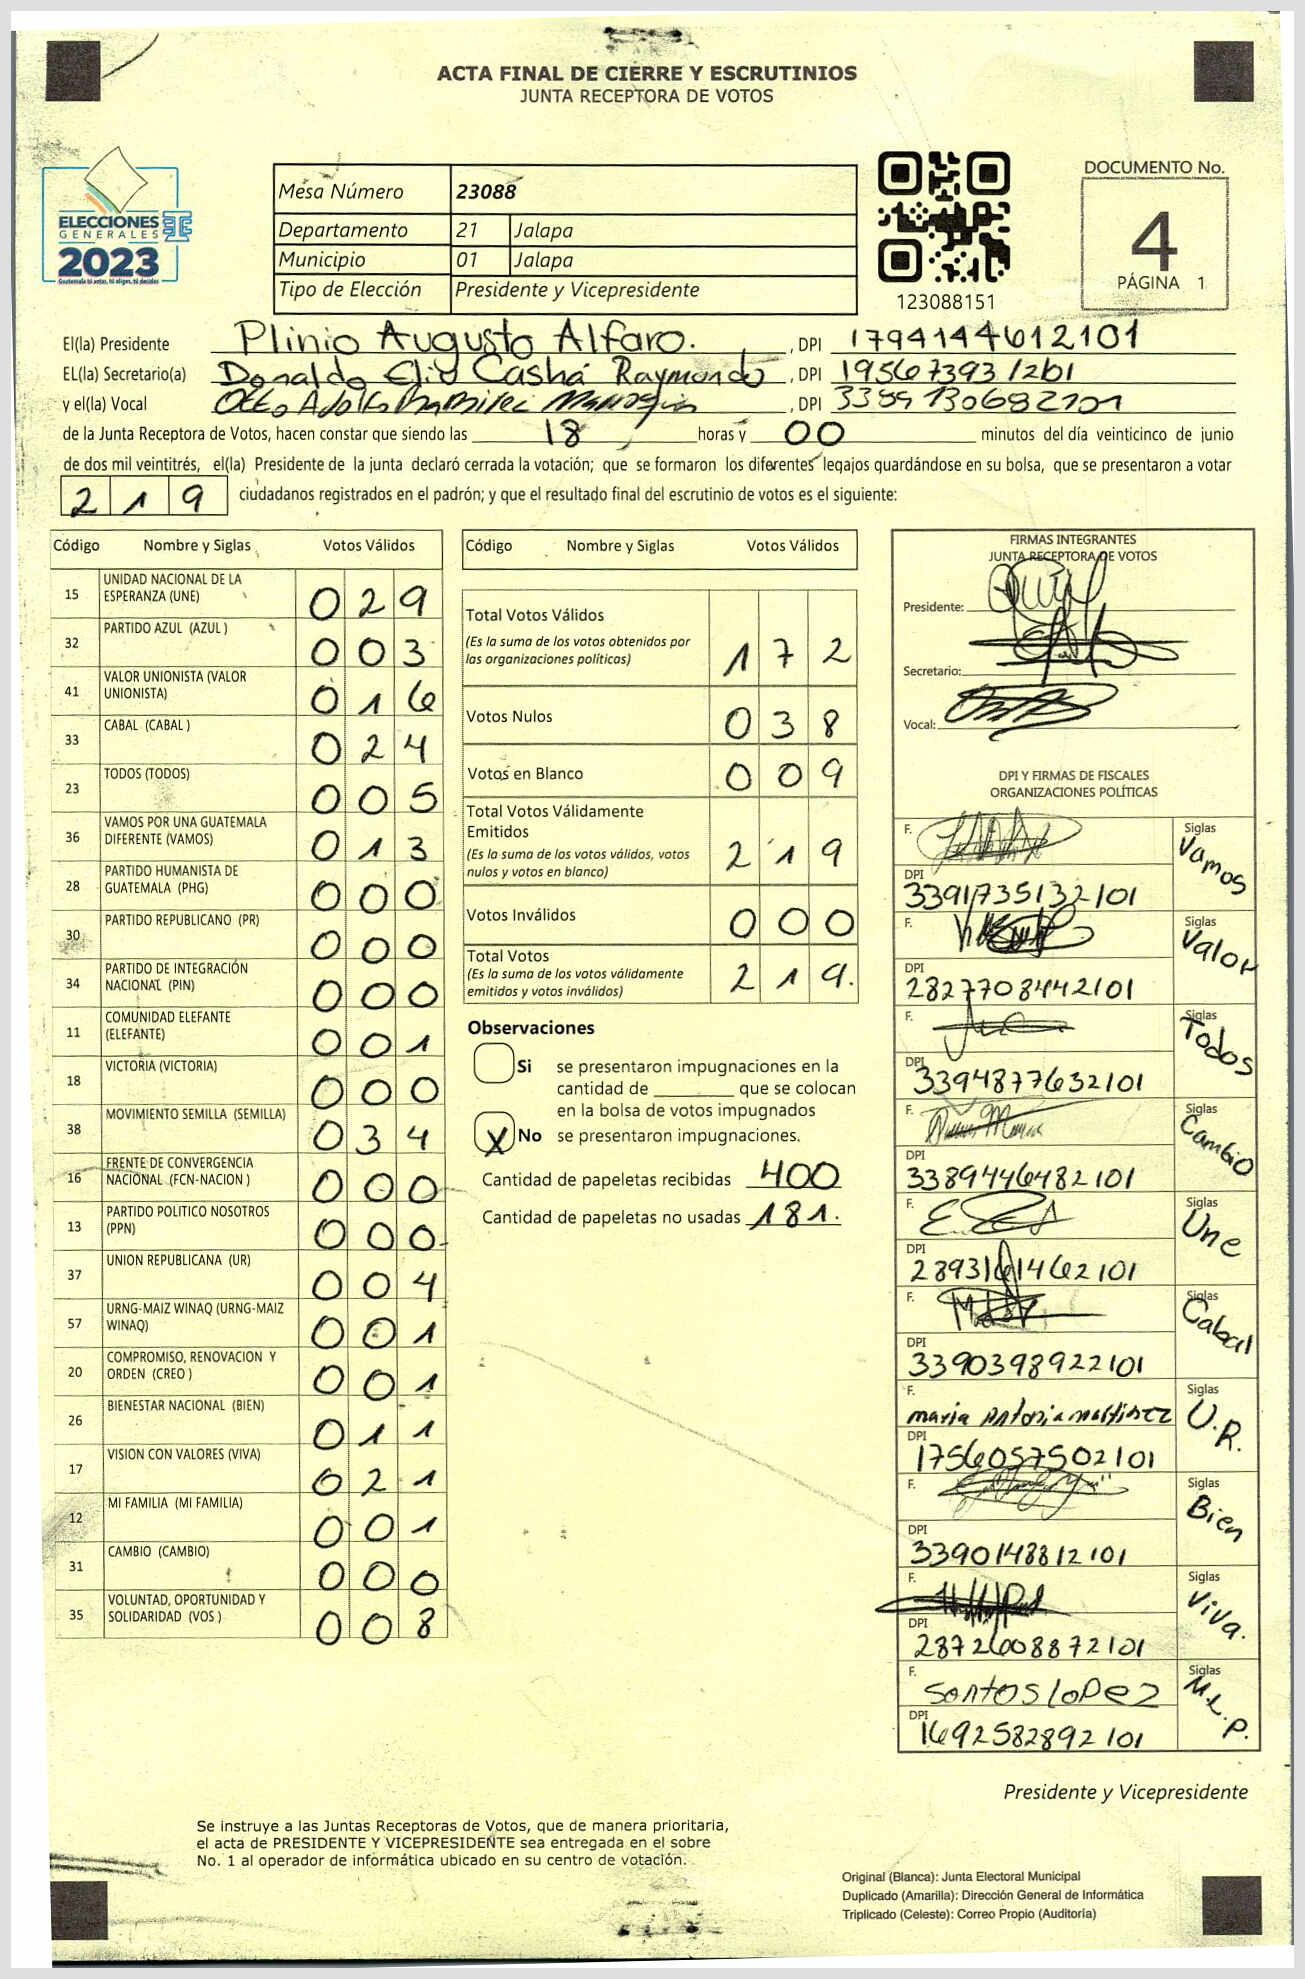 ACTA FINAL DE CIERRE Y ESCRUTINIOS
JUNTA RECEPTORA DE VOTOS
ELECCIONES
GENERALES
2023
Guatemala tú votas, tú eliges, tú decides
Mesa Número 23088
Departamento 21 Jalapa
Municipio 01 Jalapa
Tipo de Elección Presidente y Vicepresidente
123088151
DOCUMENTO No.
4
PÁGINA 1
El(la) Presidente Plinio Augusto Alfaro. , DPI 1794144612101
EL(la) Secretario(a) Donaldo Elio Cashá Raymundo , DPI 1956739312101
y el(la) Vocal Otto Adolfo Ramirez , DPI 3389130682101
de la Junta Receptora de Votos, hacen constar que siendo las 18 horas y 00 minutos del día veinticinco de junio
de dos mil veintitrés, el(la) Presidente de la junta declaró cerrada la votación; que se formaron los diferentes legajos quardándose en su bolsa, que se presentaron a votar
219 ciudadanos registrados en el padrón; y que el resultado final del escrutinio de votos es el siguiente:
Código Nombre y Siglas Votos Válidos
15 UNIDAD NACIONAL DE LA ESPERANZA (UNE) 029
32 PARTIDO AZUL (AZUL ) 003
41 VALOR UNIONISTA (VALOR UNIONISTA) 016
33 CABAL (CABAL ) 024
23 TODOS (TODOS) 005
36 VAMOS POR UNA GUATEMALA DIFERENTE (VAMOS) 013
28 PARTIDO HUMANISTA DE GUATEMALA (PHG) 000
30 PARTIDO REPUBLICANO (PR) 000
34 PARTIDO DE INTEGRACIÓN NACIONAL (PIN) 000
11 COMUNIDAD ELEFANTE (ELEFANTE) 001
18 VICTORIA (VICTORIA) 000
38 MOVIMIENTO SEMILLA (SEMILLA) 034
16 FRENTE DE CONVERGENCIA NACIONAL (FCN-NACION ) 000
13 PARTIDO POLITICO NOSOTROS (PPN) 000
37 UNION REPUBLICANA (UR) 004
57 URNG-MAIZ WINAQ (URNG-MAIZ WINAQ) 001
20 COMPROMISO, RENOVACION Y ORDEN (CREO ) 001
26 BIENESTAR NACIONAL (BIEN) 011
17 VISION CON VALORES (VIVA) 021
12 MI FAMILIA (MI FAMILIA) 001
31 CAMBIO (CAMBIO) 000
35 VOLUNTAD, OPORTUNIDAD Y SOLIDARIDAD (VOS ) 008
Código Nombre y Siglas Votos Válidos
Total Votos Válidos 172
(Es la suma de los votos obtenidos por
las organizaciones políticas)
Votos Nulos 038
Votos en Blanco 009
Total Votos Válidamente
Emitidos 219
(Es la suma de los votos válidos, votos
nulos y votos en blanco)
Votos Inválidos 000
Total Votos 219.
(Es la suma de los votos válidamente
emitidos y votos inválidos)
Observaciones
Si se presentaron impugnaciones en la
cantidad de ________ que se colocan
en la bolsa de votos impugnados
X No se presentaron impugnaciones.
Cantidad de papeletas recibidas 400
Cantidad de papeletas no usadas 181.
FIRMAS INTEGRANTES
JUNTA RECEPTORA DE VOTOS
Presidente:
Secretario:
Vocal:
DPI Y FIRMAS DE FISCALES
ORGANIZACIONES POLÍTICAS
F. Siglas Vamos
DPI 3391735132101
F. Siglas Valor
DPI 2827708442101
F. Siglas Todos
DPI 3394877632101
F. Siglas Cambio
DPI 3389446482101
F. Siglas Une
DPI 2893161462101
F. Siglas Cabal
DPI 3390398922101
F. maria Antonia martinez Siglas U.R.
DPI 1756057502101
F. Siglas Bien
DPI 3390148812101
F. Siglas Viva.
DPI 2872608872101
F. Santos Lopez Siglas M.L.P.
DPI 1692582892101
Presidente y Vicepresidente
Se instruye a las Juntas Receptoras de Votos, que de manera prioritaria,
el acta de PRESIDENTE Y VICEPRESIDENTE sea entregada en el sobre
No. 1 al operador de informática ubicado en su centro de votación.
Original (Blanca): Junta Electoral Municipal
Duplicado (Amarilla): Dirección General de Informática
Triplicado (Celeste): Correo Propio (Auditoría)